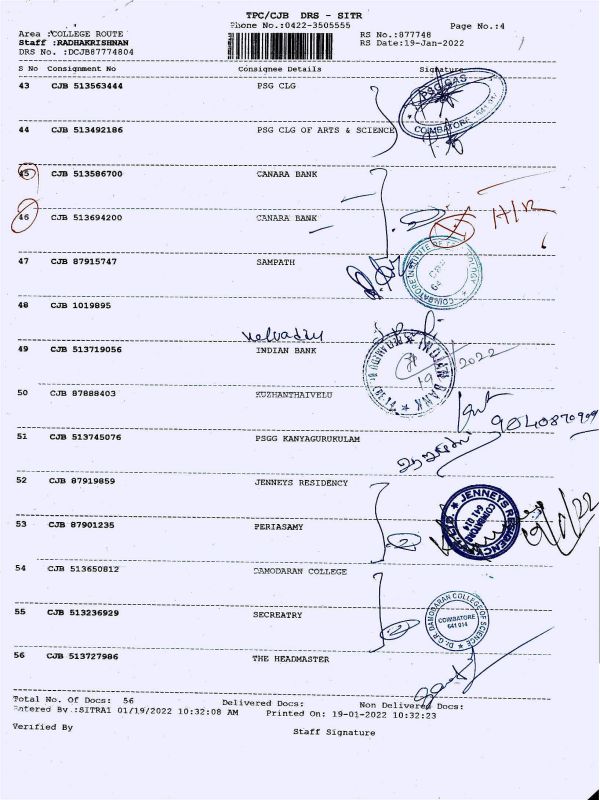 TPC/CJB DRS - SITR
Phone No.:0422-3505555 Page No.:4
Area :COLLEGE ROUTE RS No.:877748
Staff :RADHAKRISHNAN RS Date:19-Jan-2022
DRS No. :DCJB87774804
S No Consignment No Consignee Details Signature
43 CJB 513563444 PSG CLG
PSG CAS
COIMBATORE - 641 014
44 CJB 513492186 PSG CLG OF ARTS & SCIENCE
45 CJB 513586700 CANARA BANK
46 CJB 513694200 CANARA BANK
47 CJB 87915747 SAMPATH
48 CJB 1019895
49 CJB 513719056 INDIAN BANK
INDIAN BANK
2022
50 CJB 87888403 KUZHANTHAIVELU
9040870909
51 CJB 513745076 PSGG KANYAGURUKULAM
52 CJB 87919859 JENNEYS RESIDENCY
JENNEYS RESIDENCY
COIMBATORE
641 014
19/1/22
53 CJB 87901235 PERIASAMY
54 CJB 513650812 DAMODARAN COLLEGE
55 CJB 513236929 SECREATRY
Dr. G.R. DAMODARAN COLLEGE OF SCIENCE
COIMBATORE
641 014
56 CJB 513727986 THE HEADMASTER
Total No. Of Docs: 56 Delivered Docs: Non Delivered Docs:
Entered By :SITRA1 01/19/2022 10:32:08 AM Printed On: 19-01-2022 10:32:23
Verified By Staff Signature